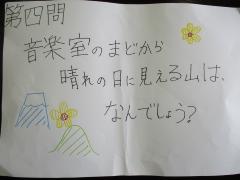 第四問
音楽室のまどから
晴れの日に見える山は、
なんでしょう?